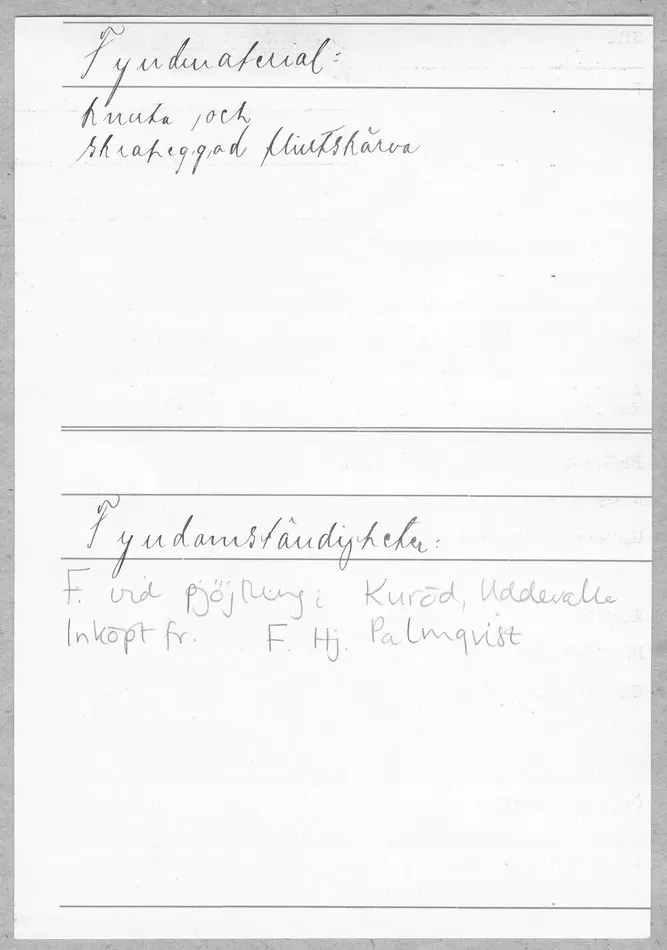 Fyndmaterial:
knuta och
skrapeggad flintskärva
Fyndomständigheter:
F. vid plöjning i Kuröd, Uddevalla
Inköpt fr. F. Hj. Palmqvist